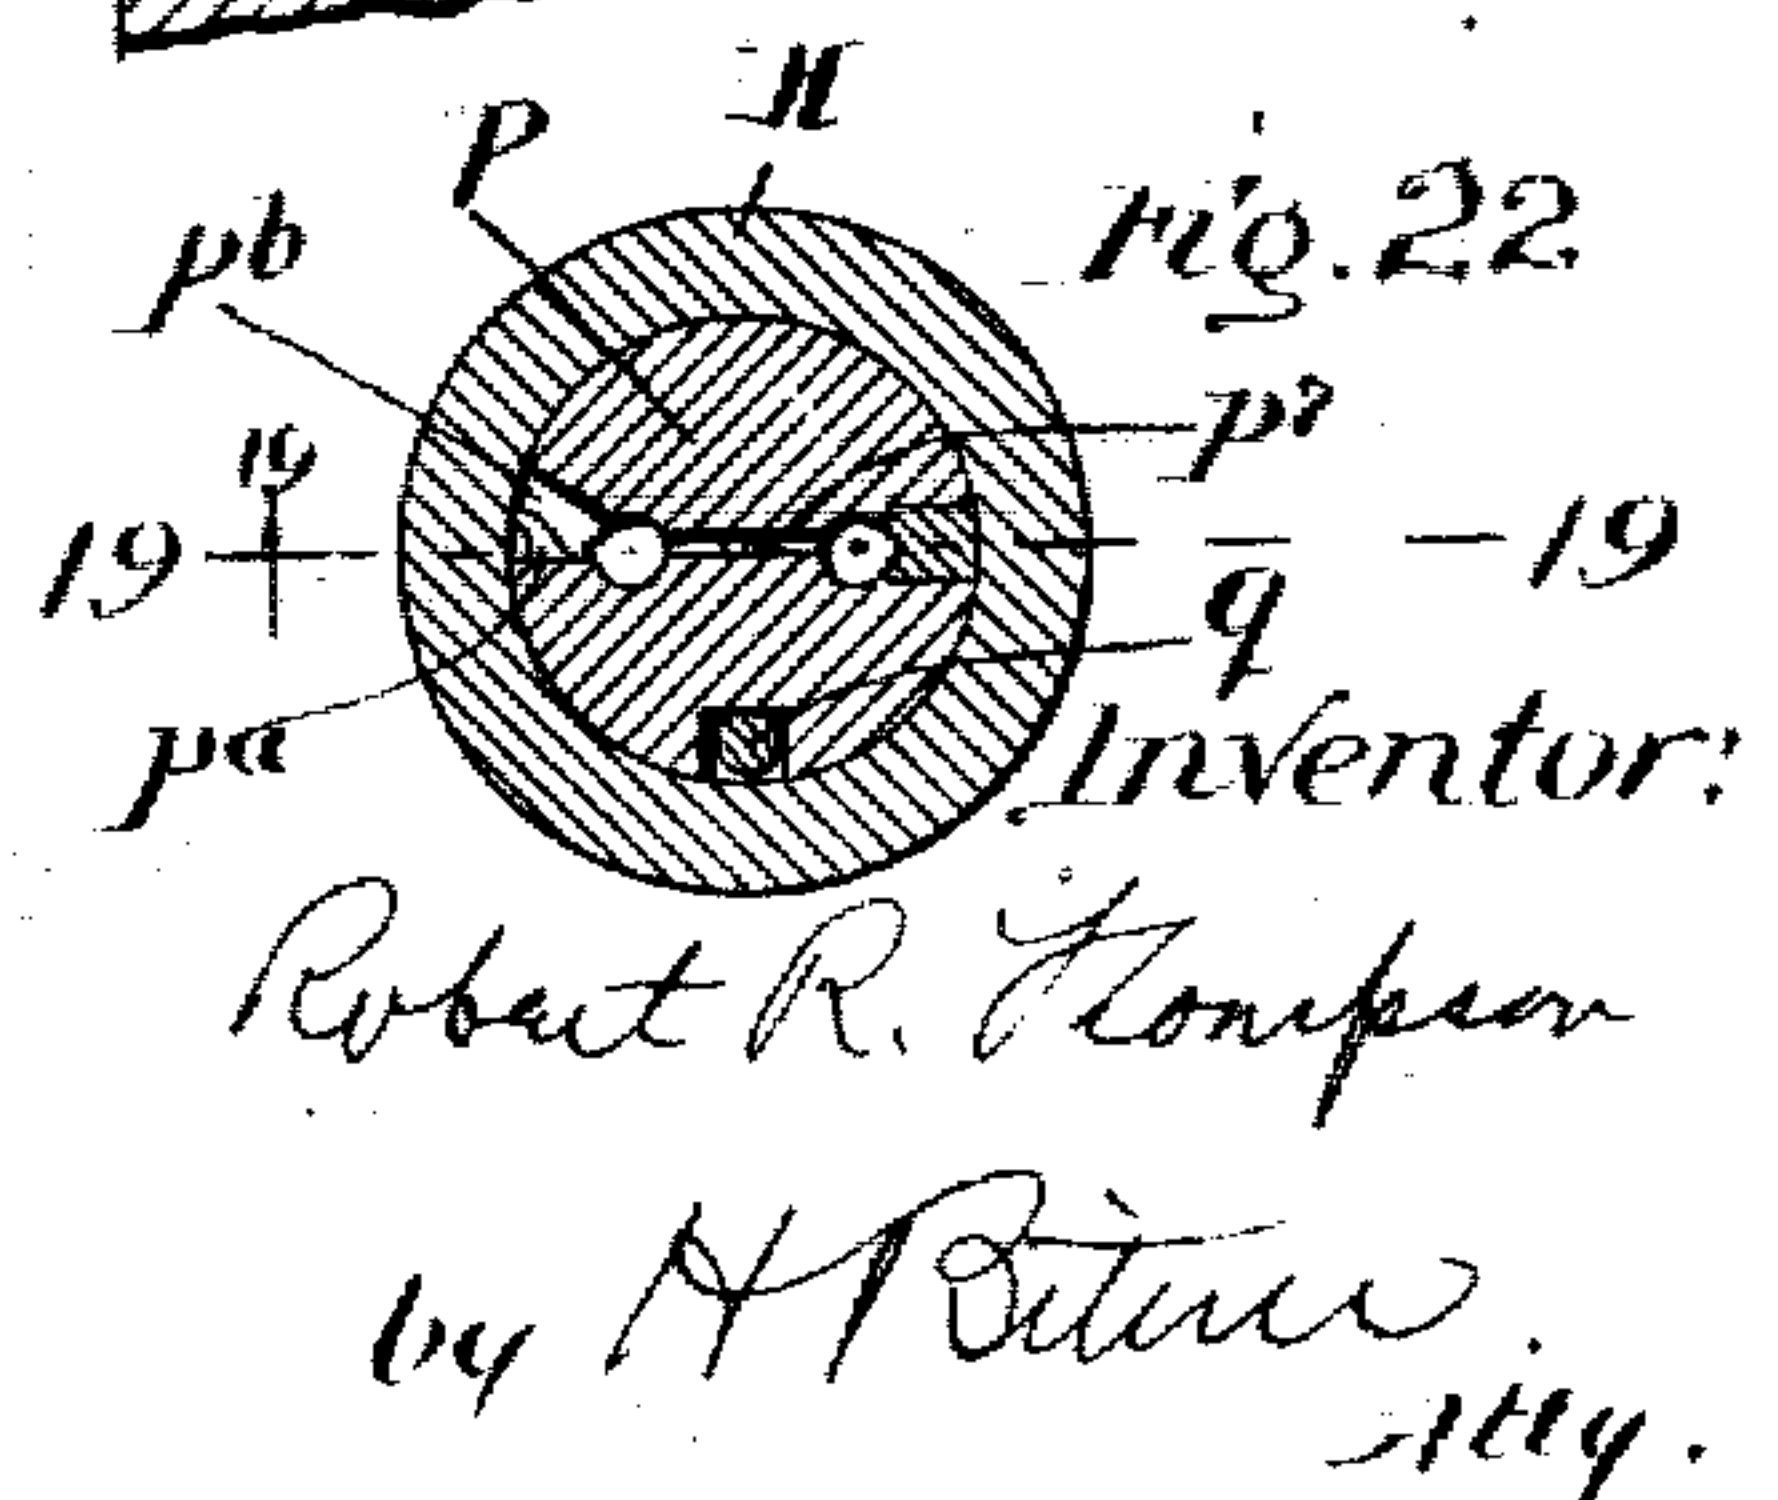 H
P
Fig. 22
pb
p²
19
19 — — 19
q
pa
Inventor:
Robert R. Thompson
by H
Atty.